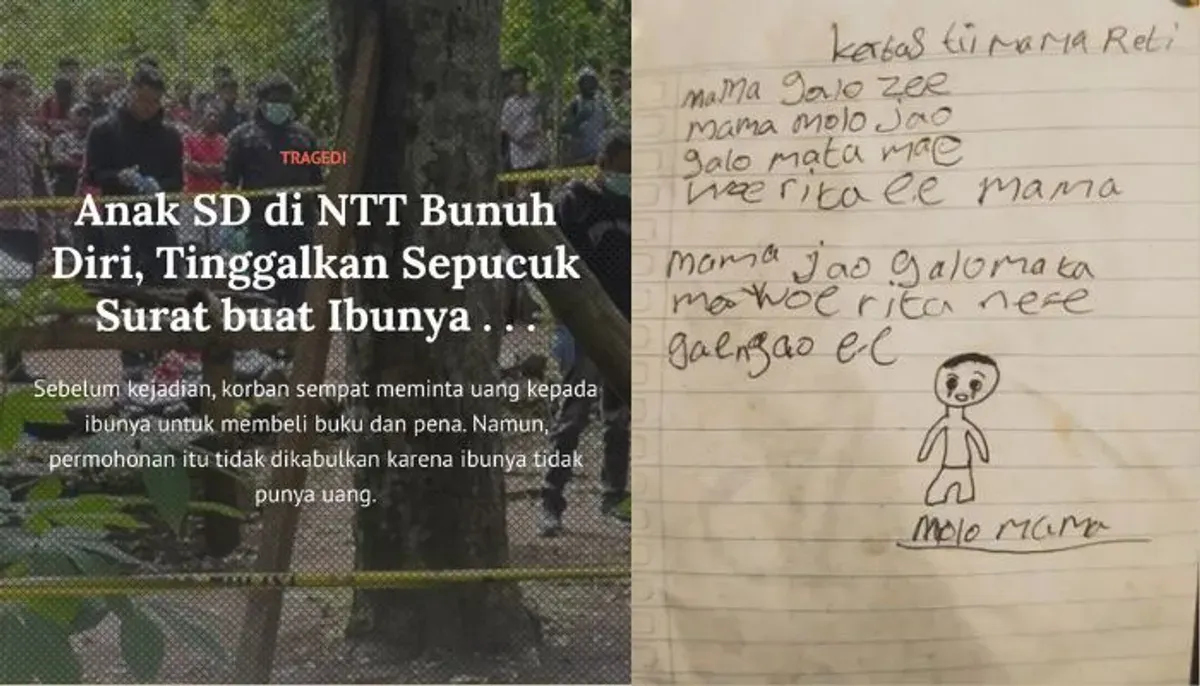 TRAGEDI
Anak SD di NTT Bunuh
Diri, Tinggalkan Sepucuk
Surat buat Ibunya . . .
Sebelum kejadian, korban sempat meminta uang kepada
ibunya untuk membeli buku dan pena. Namun,
permohonan itu tidak dikabulkan karena ibunya tidak
punya uang.
kertas tii mama Reti
mama galo zee
mama molo jao
galo mata mae
woe rita ee mama
mama jao galo mata
mae woe rita ne
gae ngao ee
molo mama